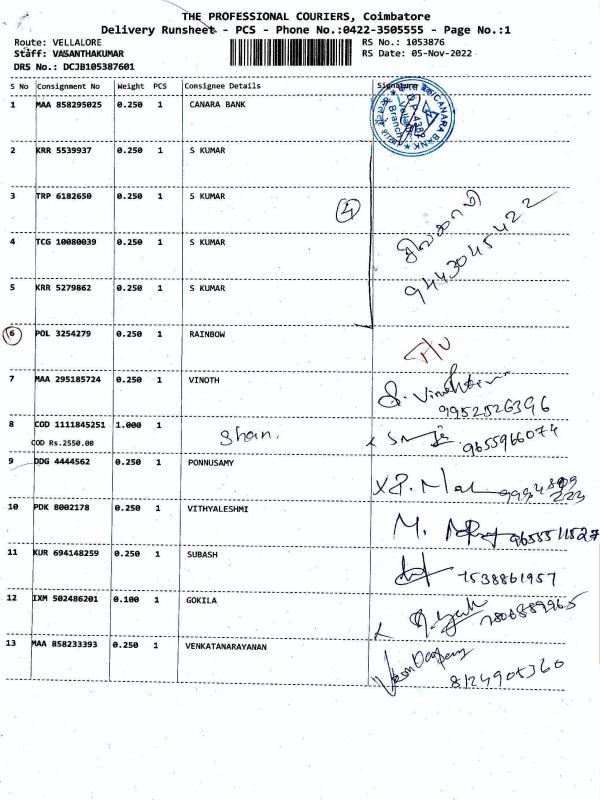 THE PROFESSIONAL COURIERS, Coimbatore
Delivery Runsheet - PCS - Phone No.:0422-3505555 - Page No.:1
Route: VELLALORE RS No.: 1053876
Staff: VASANTHAKUMAR RS Date: 05-Nov-2022
DRS No.: DCJB105387601
S No Consignment No Weight PCS Consignee Details Signature
1 MAA 858295025 0.250 1 CANARA BANK
CANARA BANK
Branch
2 KRR 5539937 0.250 1 S KUMAR
3 TRP 6182650 0.250 1 S KUMAR
4
4 TCG 10080039 0.250 1 S KUMAR
9443045422
5 KRR 5279862 0.250 1 S KUMAR
6 POL 3254279 0.250 1 RAINBOW
7 MAA 295185724 0.250 1 VINOTH
9952526396
8 COD 1111845251 1.000 1 Shan. 9655966074
COD Rs.2550.00
9 DDG 4444562 0.250 1 PONNUSAMY
10 PDK 8002178 0.250 1 VITHYALESHMI M. 9655511527
11 KUR 694148259 0.250 1 SUBASH 7538861957
12 IXM 502486201 0.100 1 GOKILA
13 MAA 858233393 0.250 1 VENKATANARAYANAN
8124905360